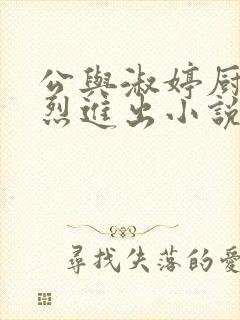 公與淑婷厨
烈進出小說
尋找失落的愛